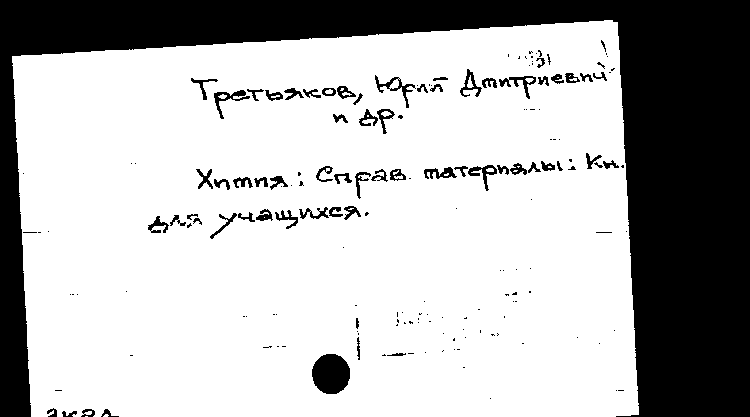 Третьяков, Юрий Дмитриевич
и др.
Химия : Справ. материалы : Кн.
для учащихся.
акад